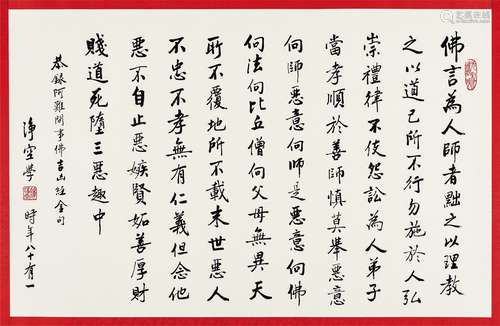 佛言為人師者點之以理教
之以道己所不行勿施於人弘
崇禮律不使怨訟為人弟子
當孝順於善師慎莫舉惡意
向師惡意向師是惡意向佛
向法向比丘僧向父母無異天
所不覆地所不載末世惡人
不忠不孝無有仁義但念他
惡不自止惡嫉賢妬善厚財
賤道死墮三惡趣中
恭錄阿難問事佛吉凶經金句
淨空學 時年八十有一